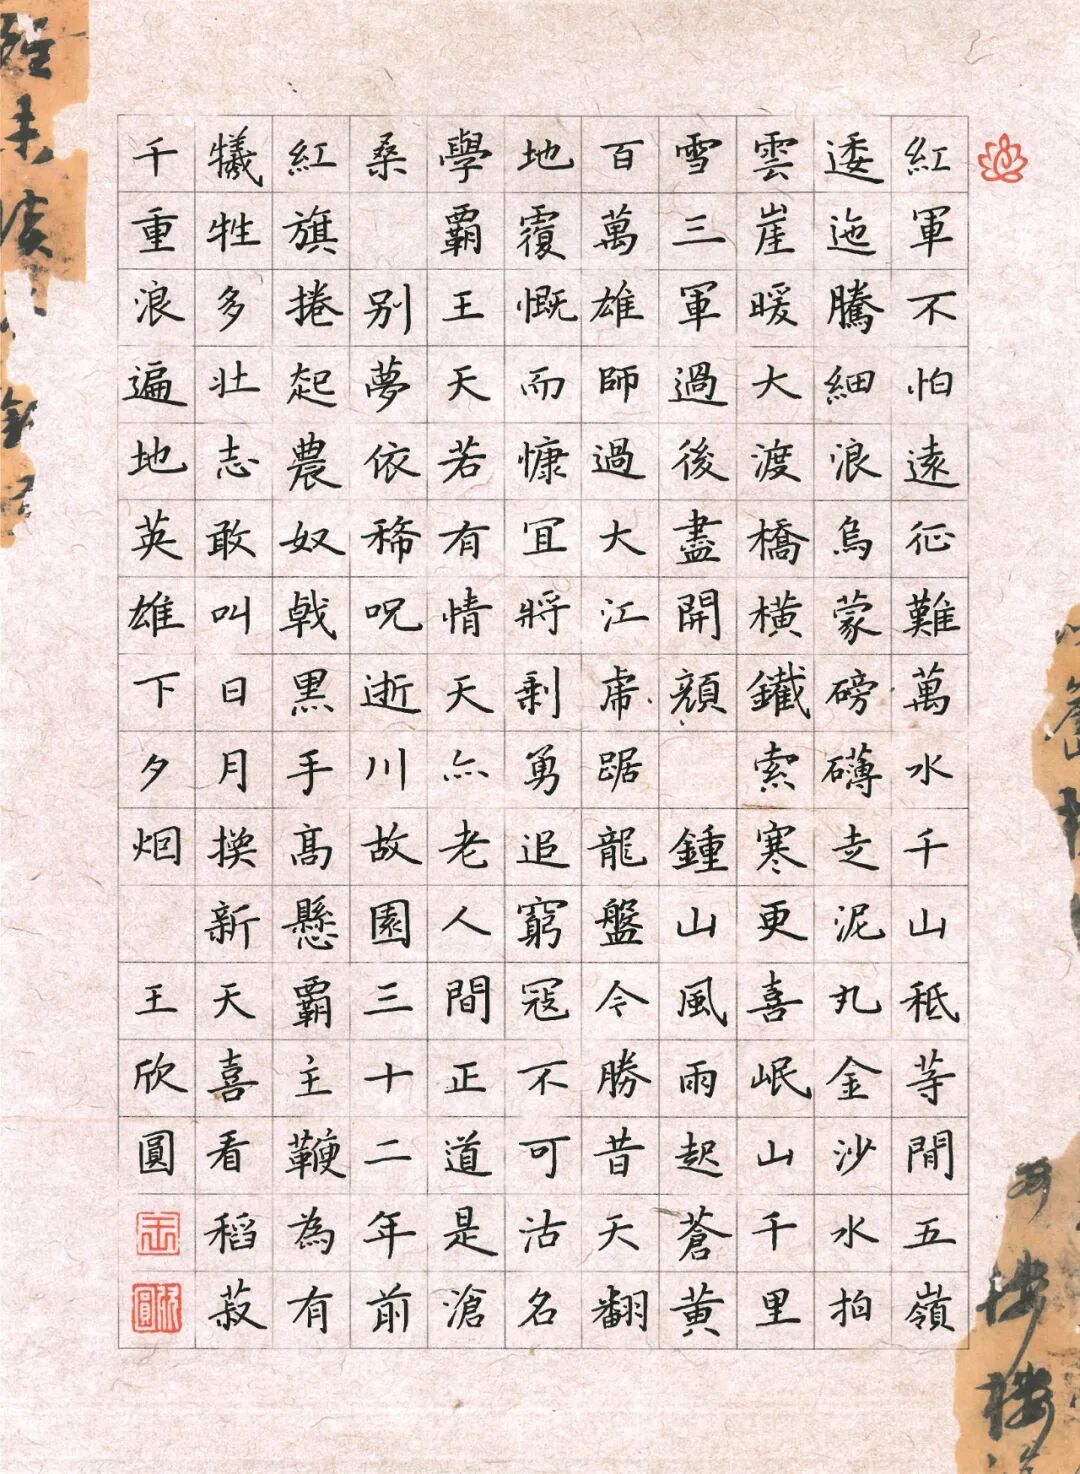 紅軍不怕遠征難萬水千山秪等閒五嶺
逶迤騰細浪烏蒙磅礴走泥丸金沙水拍
雲崖暖大渡橋橫鐵索寒更喜岷山千里
雪三軍過後盡開顏 鍾山風雨起蒼黃
百萬雄師過大江虎踞龍盤今勝昔天翻
地覆慨而慷宜將剩勇追窮寇不可沽名
學霸王天若有情天亦老人間正道是滄
桑 别夢依稀呪逝川故園三十二年前
紅旗捲起農奴戟黑手高懸霸主鞭為有
犧牲多壯志敢叫日月換新天喜看稻菽
千重浪遍地英雄下夕烟 王欣圓
王
欣圓